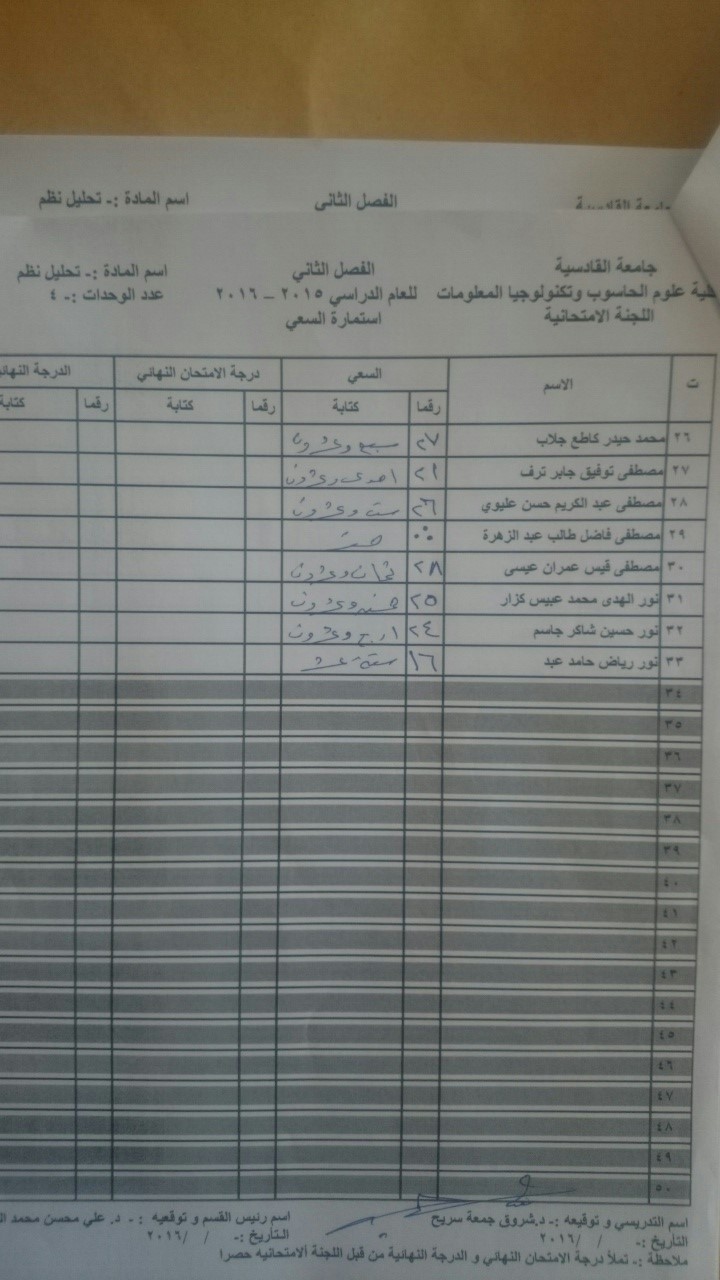 جامعة القادسية الفصل الثاني اسم المادة :- تحليل نظم
جامعة القادسية الفصل الثاني اسم المادة :- تحليل نظم
علوم الحاسوب وتكنولوجيا المعلومات للعام الدراسي ٢٠١٥ – ٢٠١٦ عدد الوحدات :- ٤
اللجنة الامتحانية استمارة السعي
ت الاسم السعي درجة الامتحان النهائي الدرجة
رقما كتابة رقما كتابة رقما كتابة
٢٦ محمد حيدر كاطع جلاب ٢٧ سبع وعشرون
٢٧ مصطفى توفيق جابر ترف ٢١ احدى وعشرون
٢٨ مصطفى عبد الكريم حسن عليوي ٢٦ ست وعشرون
٢٩ مصطفى فاضل طالب عبد الزهرة
٣٠ مصطفى قيس عمران عيسى ٢٨ ثمان وعشرون
٣١ نور الهدى محمد عبيس كزار ٢٥ خمسة وعشرون
٣٢ نور حسين شاكر جاسم ٢٤ اربع وعشرون
٣٣ نور رياض حامد عبد ١٦ ستة عشر
٣٤
٣٥
٣٦
٣٧
٣٨
٣٩
٤٠
٤١
٤٢
٤٣
٤٤
٤٥
٤٦
٤٧
٤٨
٤٩
٥٠
اسم التدريسي و توقيعه :- د.شروق جمعة سريح اسم رئيس القسم و توقعيه :- د. علي محسن محمد
التأريخ :- / / ٢٠١٦ التأريخ :- / / ٢٠١٦
ملاحظة :- تملأ درجة الامتحان النهائي و الدرجة النهائية من قبل اللجنة ألامتحانيه حصرا